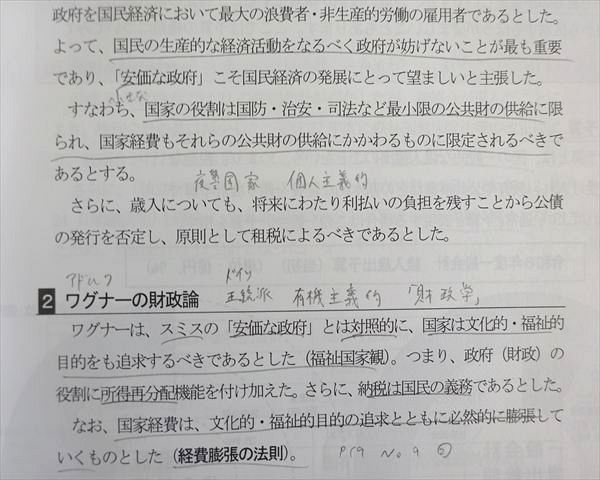 政府を国民経済において最大の浪費者・非生産的労働の雇用者であるとした。
よって、国民の生産的な経済活動をなるべく政府が妨げないことが最も重要
であり、「安価な政府」こそ国民経済の発展にとって望ましいと主張した。
小さな
すなわち、国家の役割は国防・治安・司法など最小限の公共財の供給に限
られ、国家経費もそれらの公共財の供給にかかわるものに限定されるべきで
あるとする。 夜警国家 個人主義的
さらに、歳入についても、将来にわたり利払いの負担を残すことから公債
の発行を否定し、原則として租税によるべきであるとした。
アドルフ ドイツ
2 ワグナーの財政論 正統派 有機主義的 「財政学」
ワグナーは、スミスの「安価な政府」とは対照的に、国家は文化的・福祉的
目的をも追求するべきであるとした(福祉国家観)。つまり、政府(財政)の
役割に所得再分配機能を付け加えた。さらに、納税は国民の義務であるとした。
なお、国家経費は、文化的・福祉的目的の追求とともに必然的に膨張して
いくものとした(経費膨張の法則)。 P19 No.9